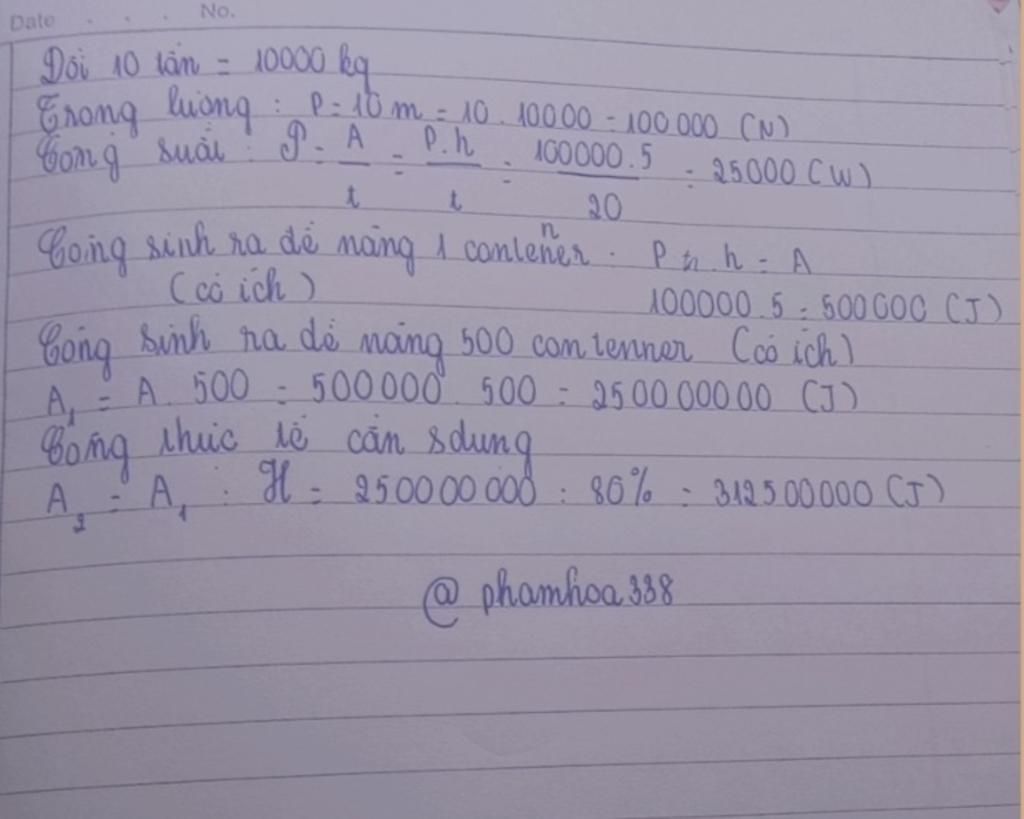 Date . . . No.
Đổi 10 tấn = 10000 kg
Trọng lượng : P = 10 m = 10 . 10000 = 100000 (N)
Công suất : P = A/t = P.h/t = 100000.5/20 = 25000 (W)
Công sinh ra để nâng 1 contener : P . h = A
(có ích) 100000.5 = 500000 (J)
Công sinh ra để nâng 500 contenner (có ích)
A₁ = A . 500 = 500000 . 500 = 250000000 (J)
Công thực tế cần sdung
A₂ = A₁ : H = 250000000 : 80% = 312500000 (J)
@ phamhoa338